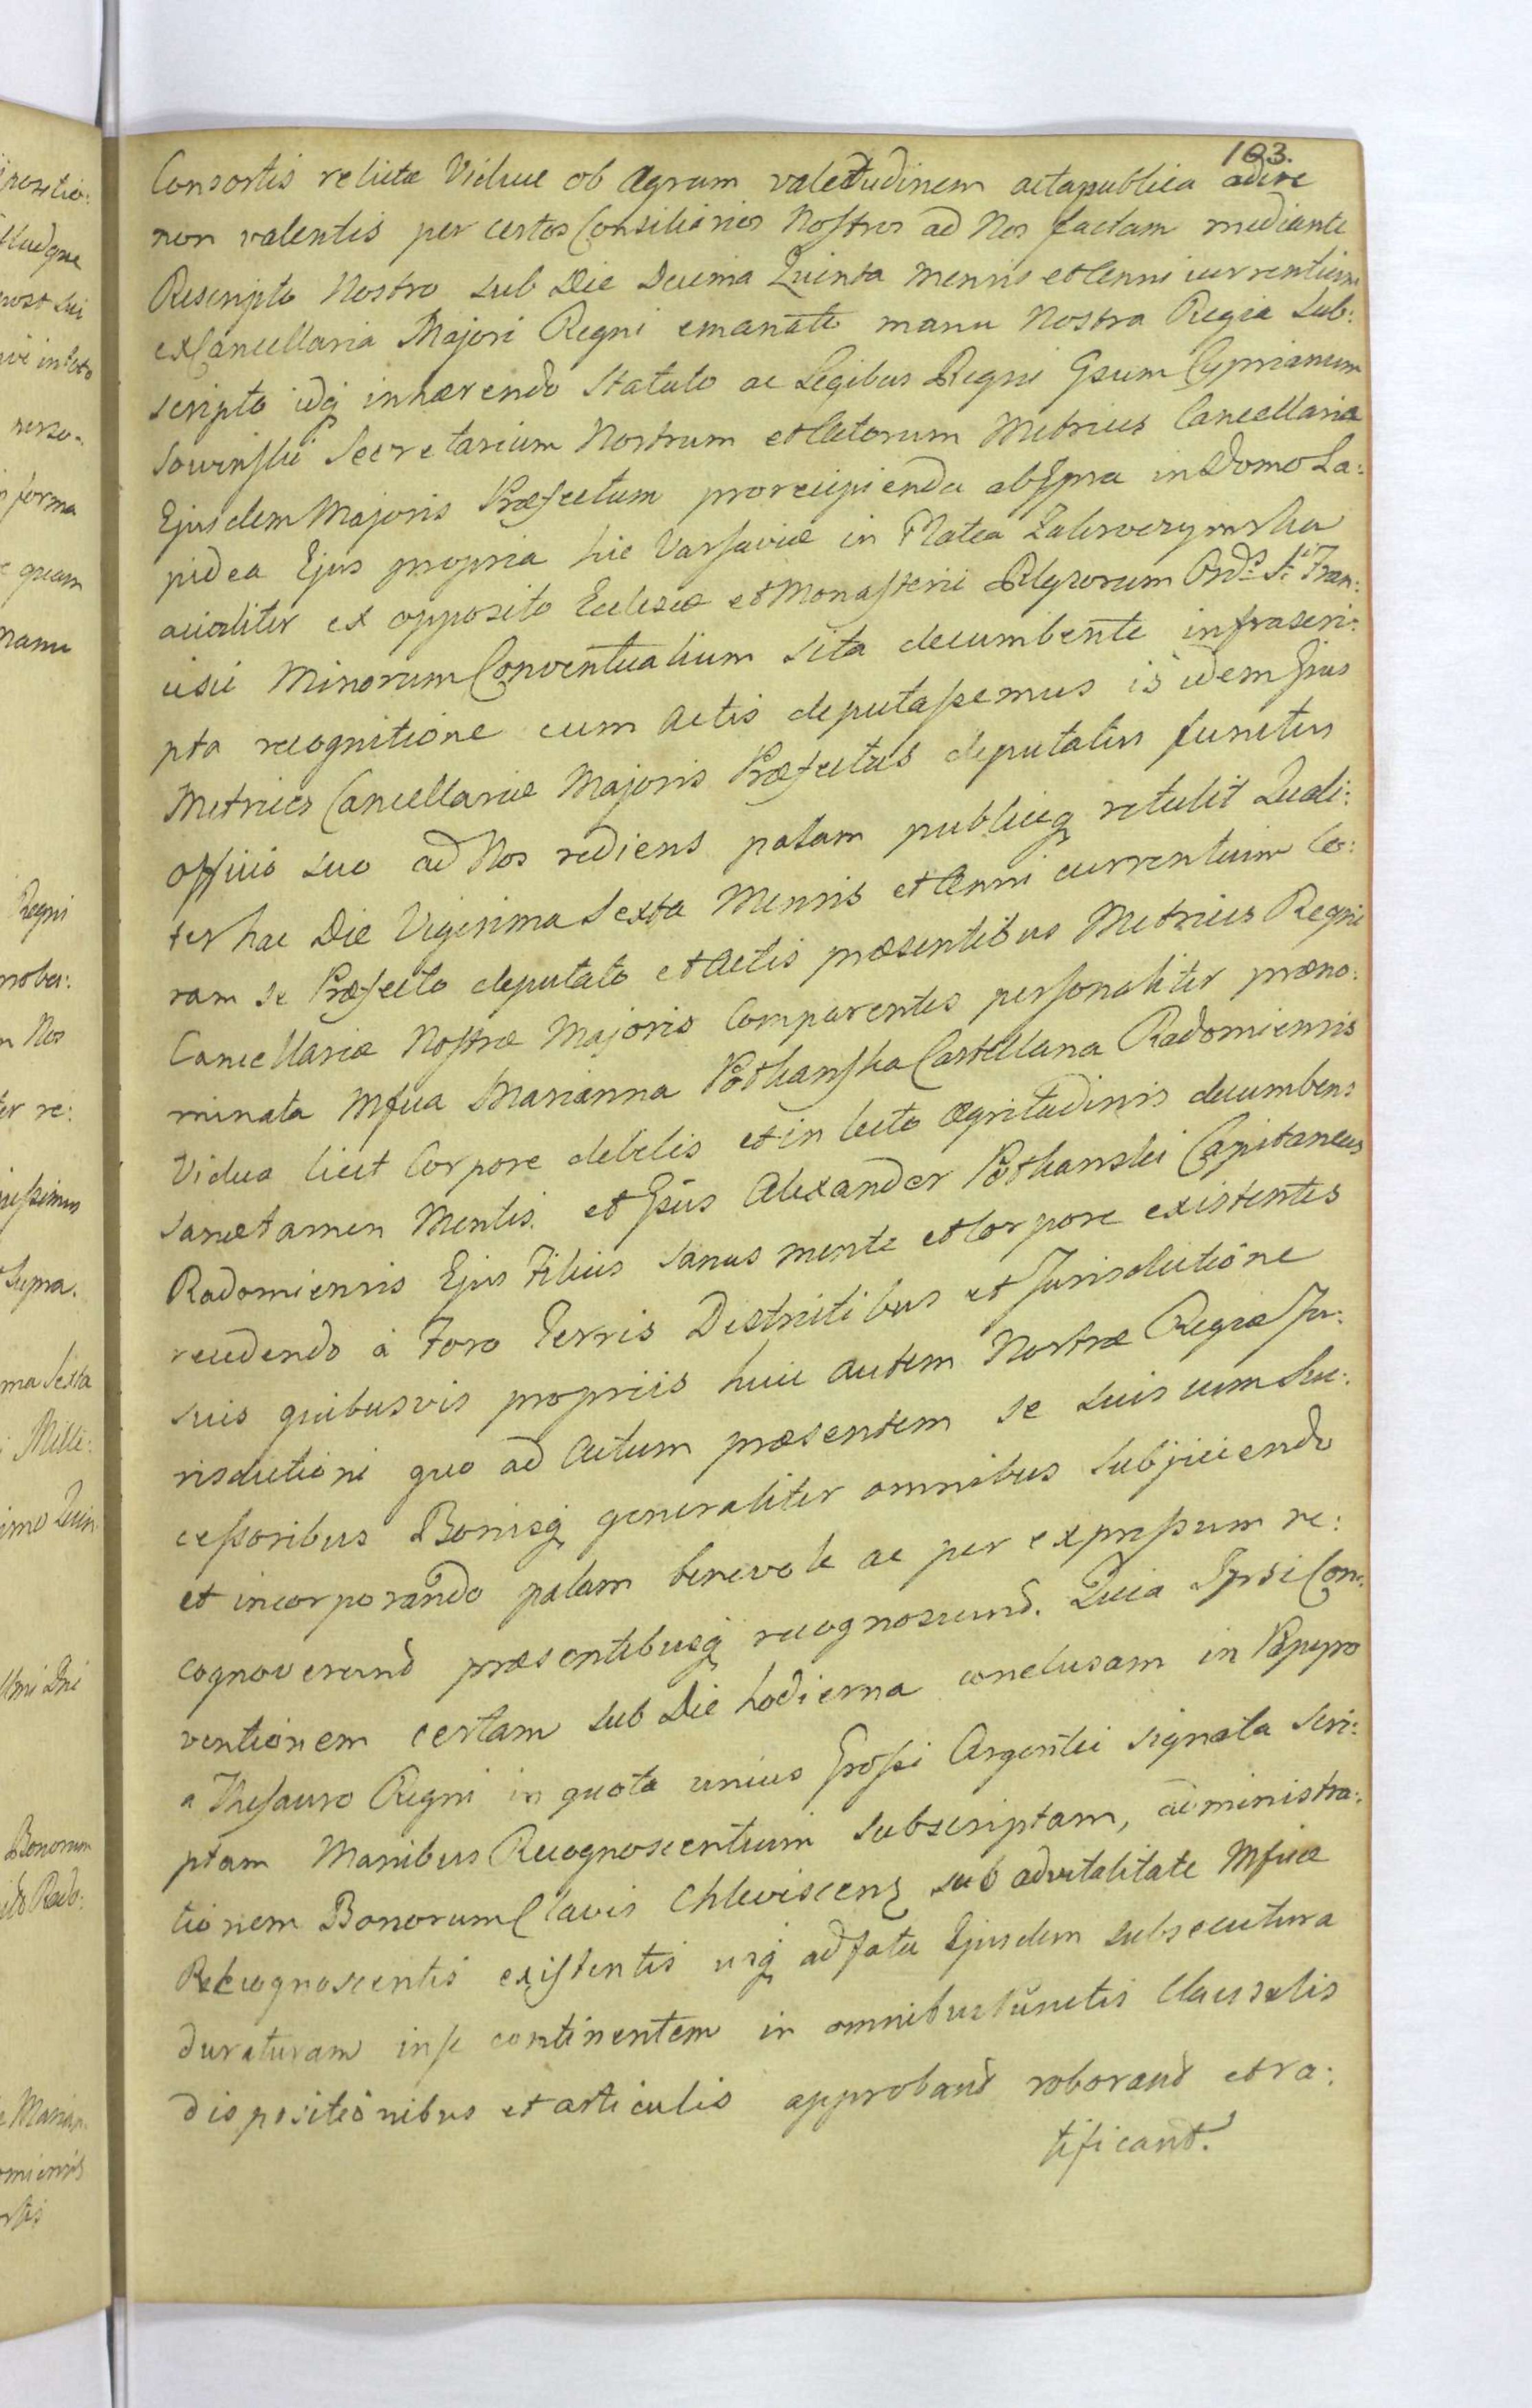 103.
Consortis relictæ Viduæ ob Ægram valetudinem acta publica adire
non valentis per certos Consiliarios Nostros ad Nos factam mediante
Rescripto Nostro sub Die Decima Quinta Mensis et Anni currentium
ex Cancellaria Majori Regni emanato manu Nostra Regia Sub:
scripto idq inhærendo Statuto ac Legibus Regni Gsum Cyprianum
Sowinski Secretarium Nostrum et Actorum Metrices Cancellariæ
Ejusdem Majoris Præfectum pro recipienda ab Ipsa in Domo La:
pidea Ejus propria hic Varsaviæ in Platea
ex opposito Eclesiæ et Monasterii Rlgzorum Ord: S: Fran:
cisci Minorum Conventualium sita decumbente infrascri:
pta recognitione cum Actis deputassemus is idem Gsus
Metrices Cancellariæ Majoris Præfectus deputatus functus
Officio suo ad Nos rediens palam publiceq retulit Quali:
ter hac Die Vigesima Sexta Mensis et Anni currentium Co:
ram se Præfecto deputato et Actis præsentibus Metrices Regni
Cancellariæ Nostræ Majoris Comparentes personaliter præno:
minata Mfica Marianna Potkanska Castellana Radomiensis
Vidua licet Corpore debilis et in lecto ægritudinis decumbens
sanæ tamen Mentis. et Gsus Alexander Potkanski Capitaneus
Radomiensis Ejus Filius sanus mente et Corpore existentes
recedendo à Foro Terris Districtibus et Jurisdictione
suis quibusvis propriis huic autem Nostræ Regiæ Ju:
risdictioni quo ad Actum præsentem se suis cum Suc:
cessoribus Bonisq generaliter omnibus subjiciendo
et incorporando palam benevole ac per expressum re:
cognoverund præsentibusq recognoscund. Quia Ipsi Con:
ventionem certam sub Die hodierna conclusam in Papyro
a Thesauro Regni in quota unius Grossi Argentei signata Scri:
ptam Manibus Recognoscentium subscriptam, administra:
tionem Bonorum Clavis Chleviscens sub advitalitate Mficæ
Recognoscentis existentis usq ad fata Ejusdem subsecutura
duraturam in se continentem in omnibus Punctis Clausulis
dispositionibus et articulis approband roborand et ra:
tificand.